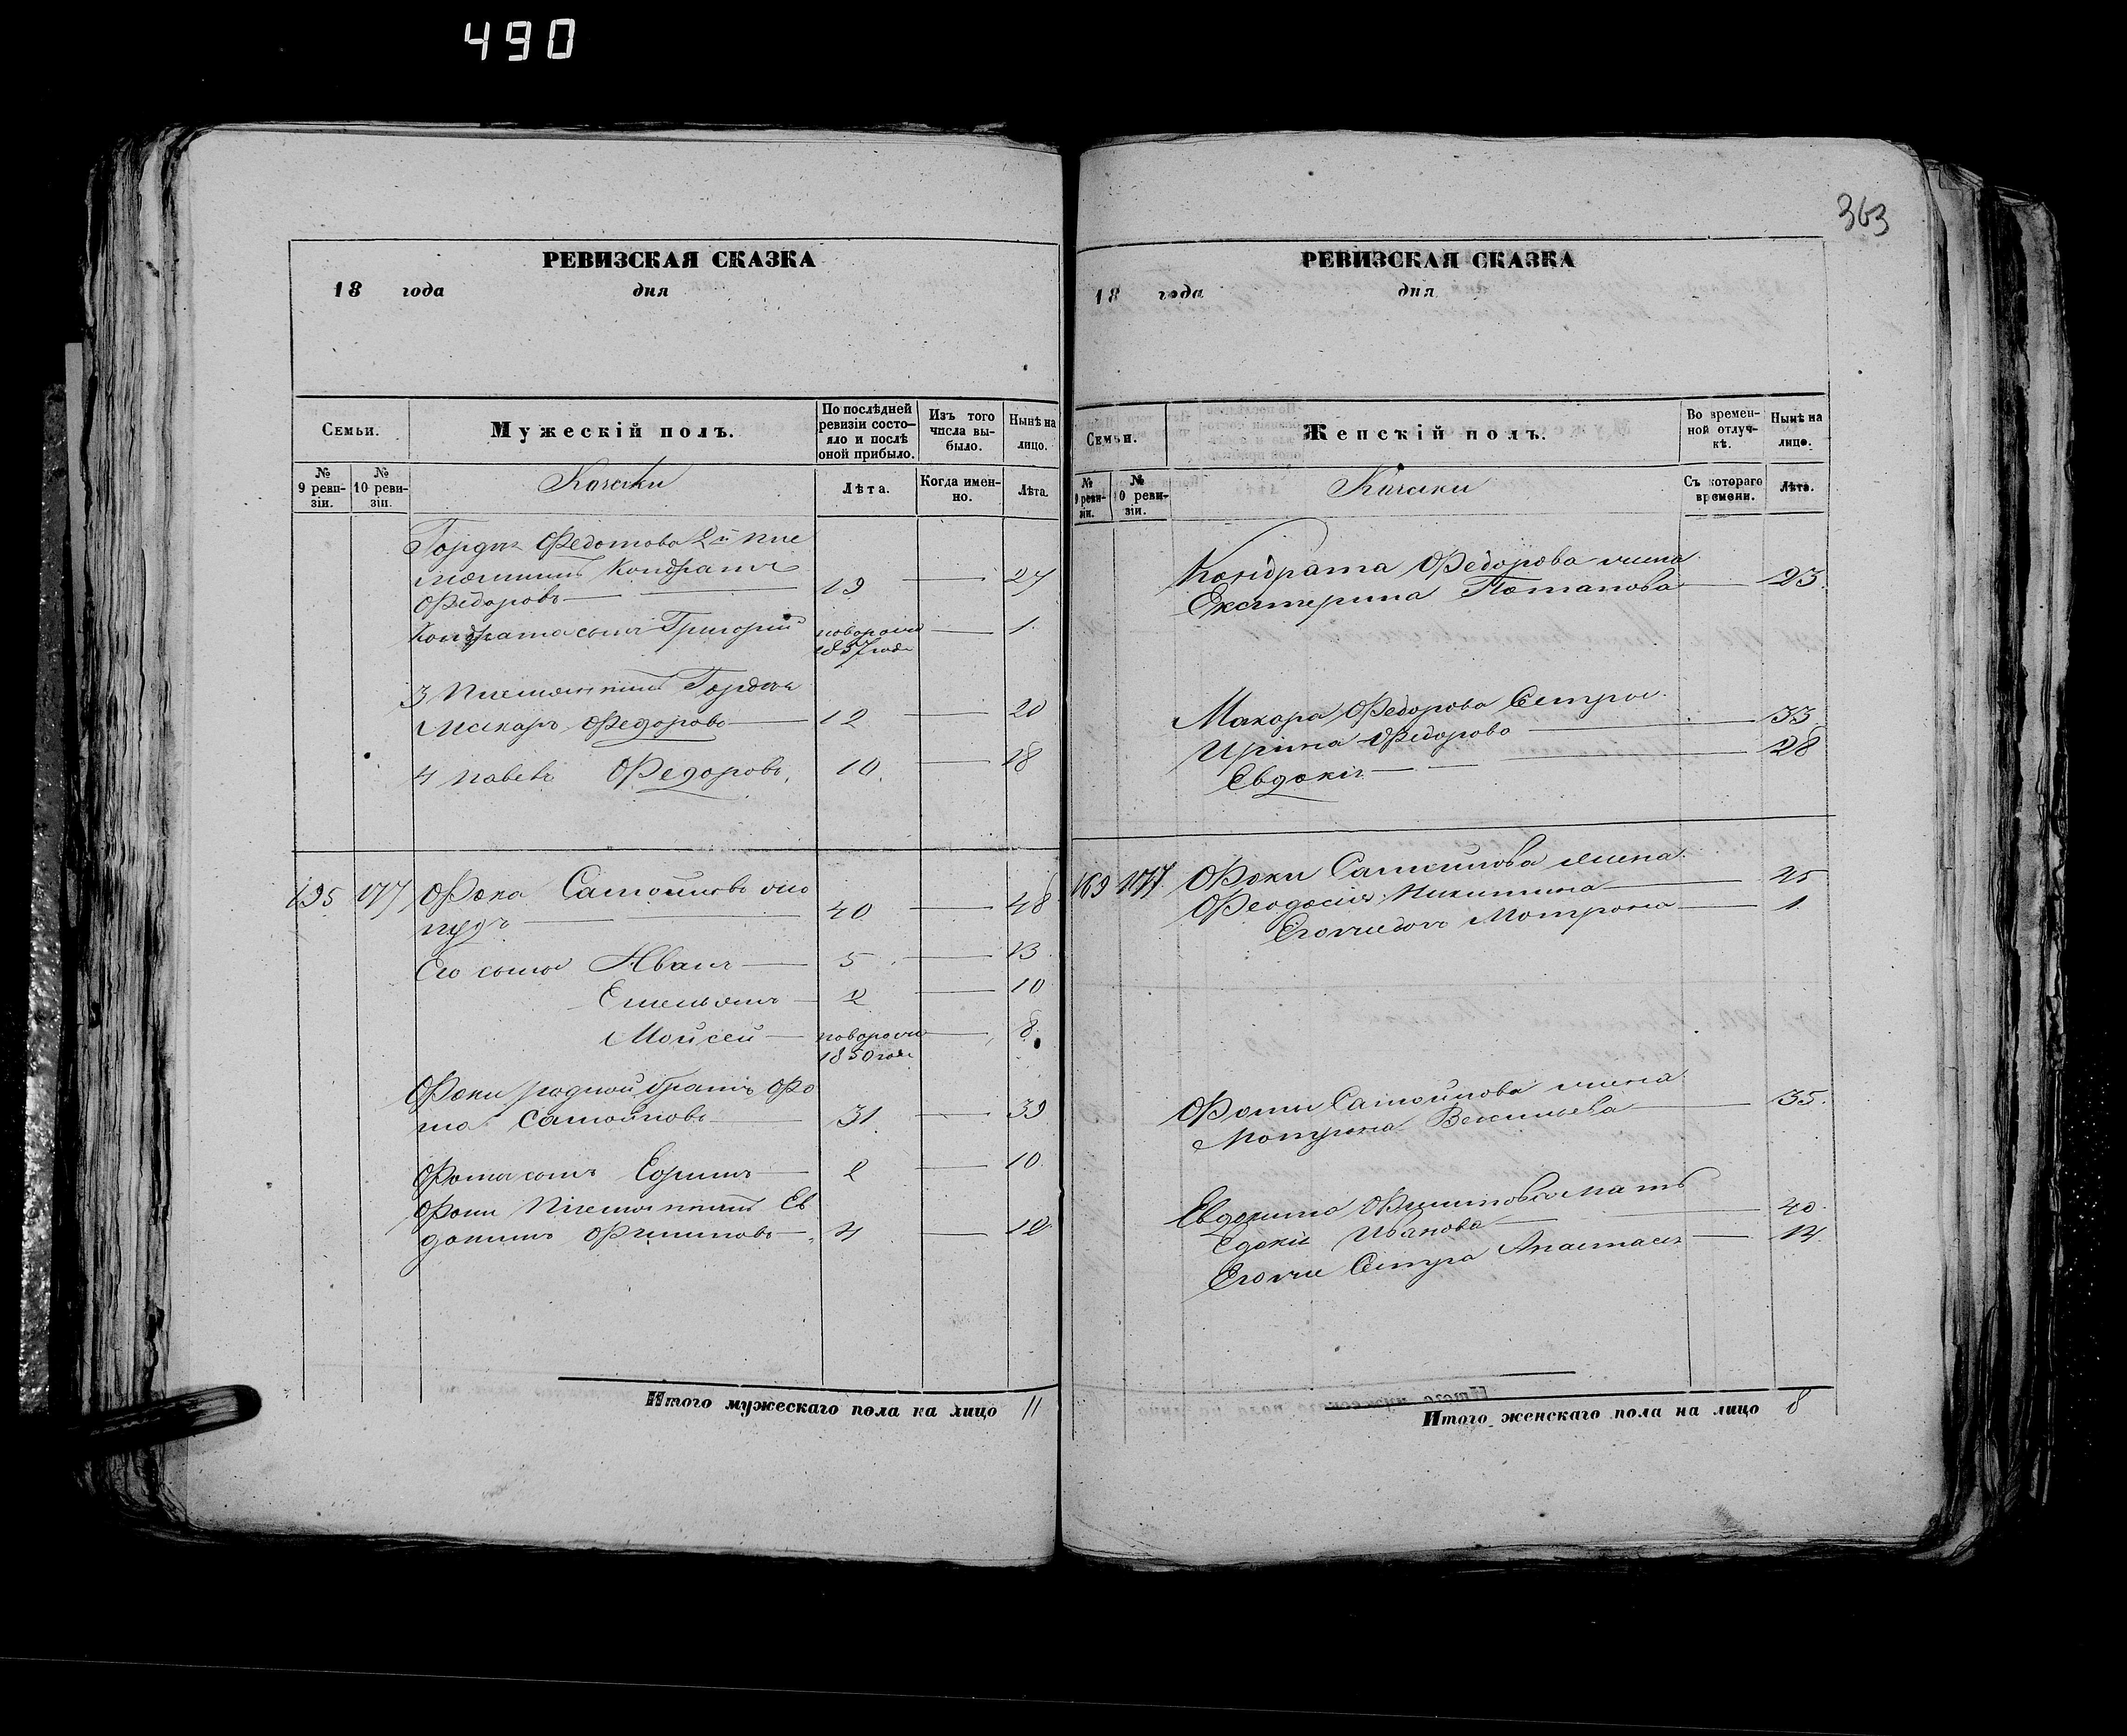 490
363
РЕВИЗСКАЯ СКАЗКА
18 года дня
Семьи.
Мужескій полъ.
По послѣдней ревизіи состояло и послѣ оной прибыло.
Изъ того числа выбыло.
Нынѣ на лицо.
№ 9 ревизіи.
№ 10 ревизіи.
Козаки
Лѣта.
Когда именно.
Лѣта.
Гордѣя Федотова 2й пле
мянникъ Кондратъ
Федоровъ 19 27
Кондрата сынъ Григорій новорожд 1857 года 1
3 племянникъ Гордѣя
Макаръ Федоровъ 12 20
4 Павелъ Федоровъ, 10. 18
195 177 Фока Самойловъ
40 48
Его сыны Иванъ 5 13
Емельянъ 2 10
Мойсей новорожд 1850 года 8
Фоки родной братъ Фо
ма Самойловъ 31 39
Фомы сынъ Ефимъ 2 10
Фоки племянникъ Ев
докимъ Филиповъ 4 12
Итого мужескаго пола на лицо 11
РЕВИЗСКАЯ СКАЗКА
18 года дня
Семьи.
Женскій полъ.
Во временной отлучкѣ.
Нынѣ на лицо.
№ 9 ревизіи.
№ 10 ревизіи.
Козаки
Съ котораго времени.
Лѣта.
Кондрата Федорова жена
Екатерина Потапова 23.
Макара Федорова Сестры
Ирина Федорова 33
Евдокія 28
169 177 Фоки Самойлова жена
Феодосія Никитина 25
Его дочь Мотрона 1
Фомы Самойлова жена
Мотрона Васильева 35.
Евдокима Филипова мать
Евдокія Иванова 40.
Его же Сестра Анастасія 14
Итого женскаго пола на лицо 8